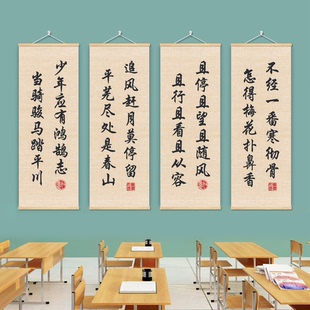 不经一番寒彻骨
怎得梅花扑鼻香
且停且望且随风
且行且看且从容
追风赶月莫停留
平芜尽处是春山
少年应有鸿鹄志
当骑骏马踏平川